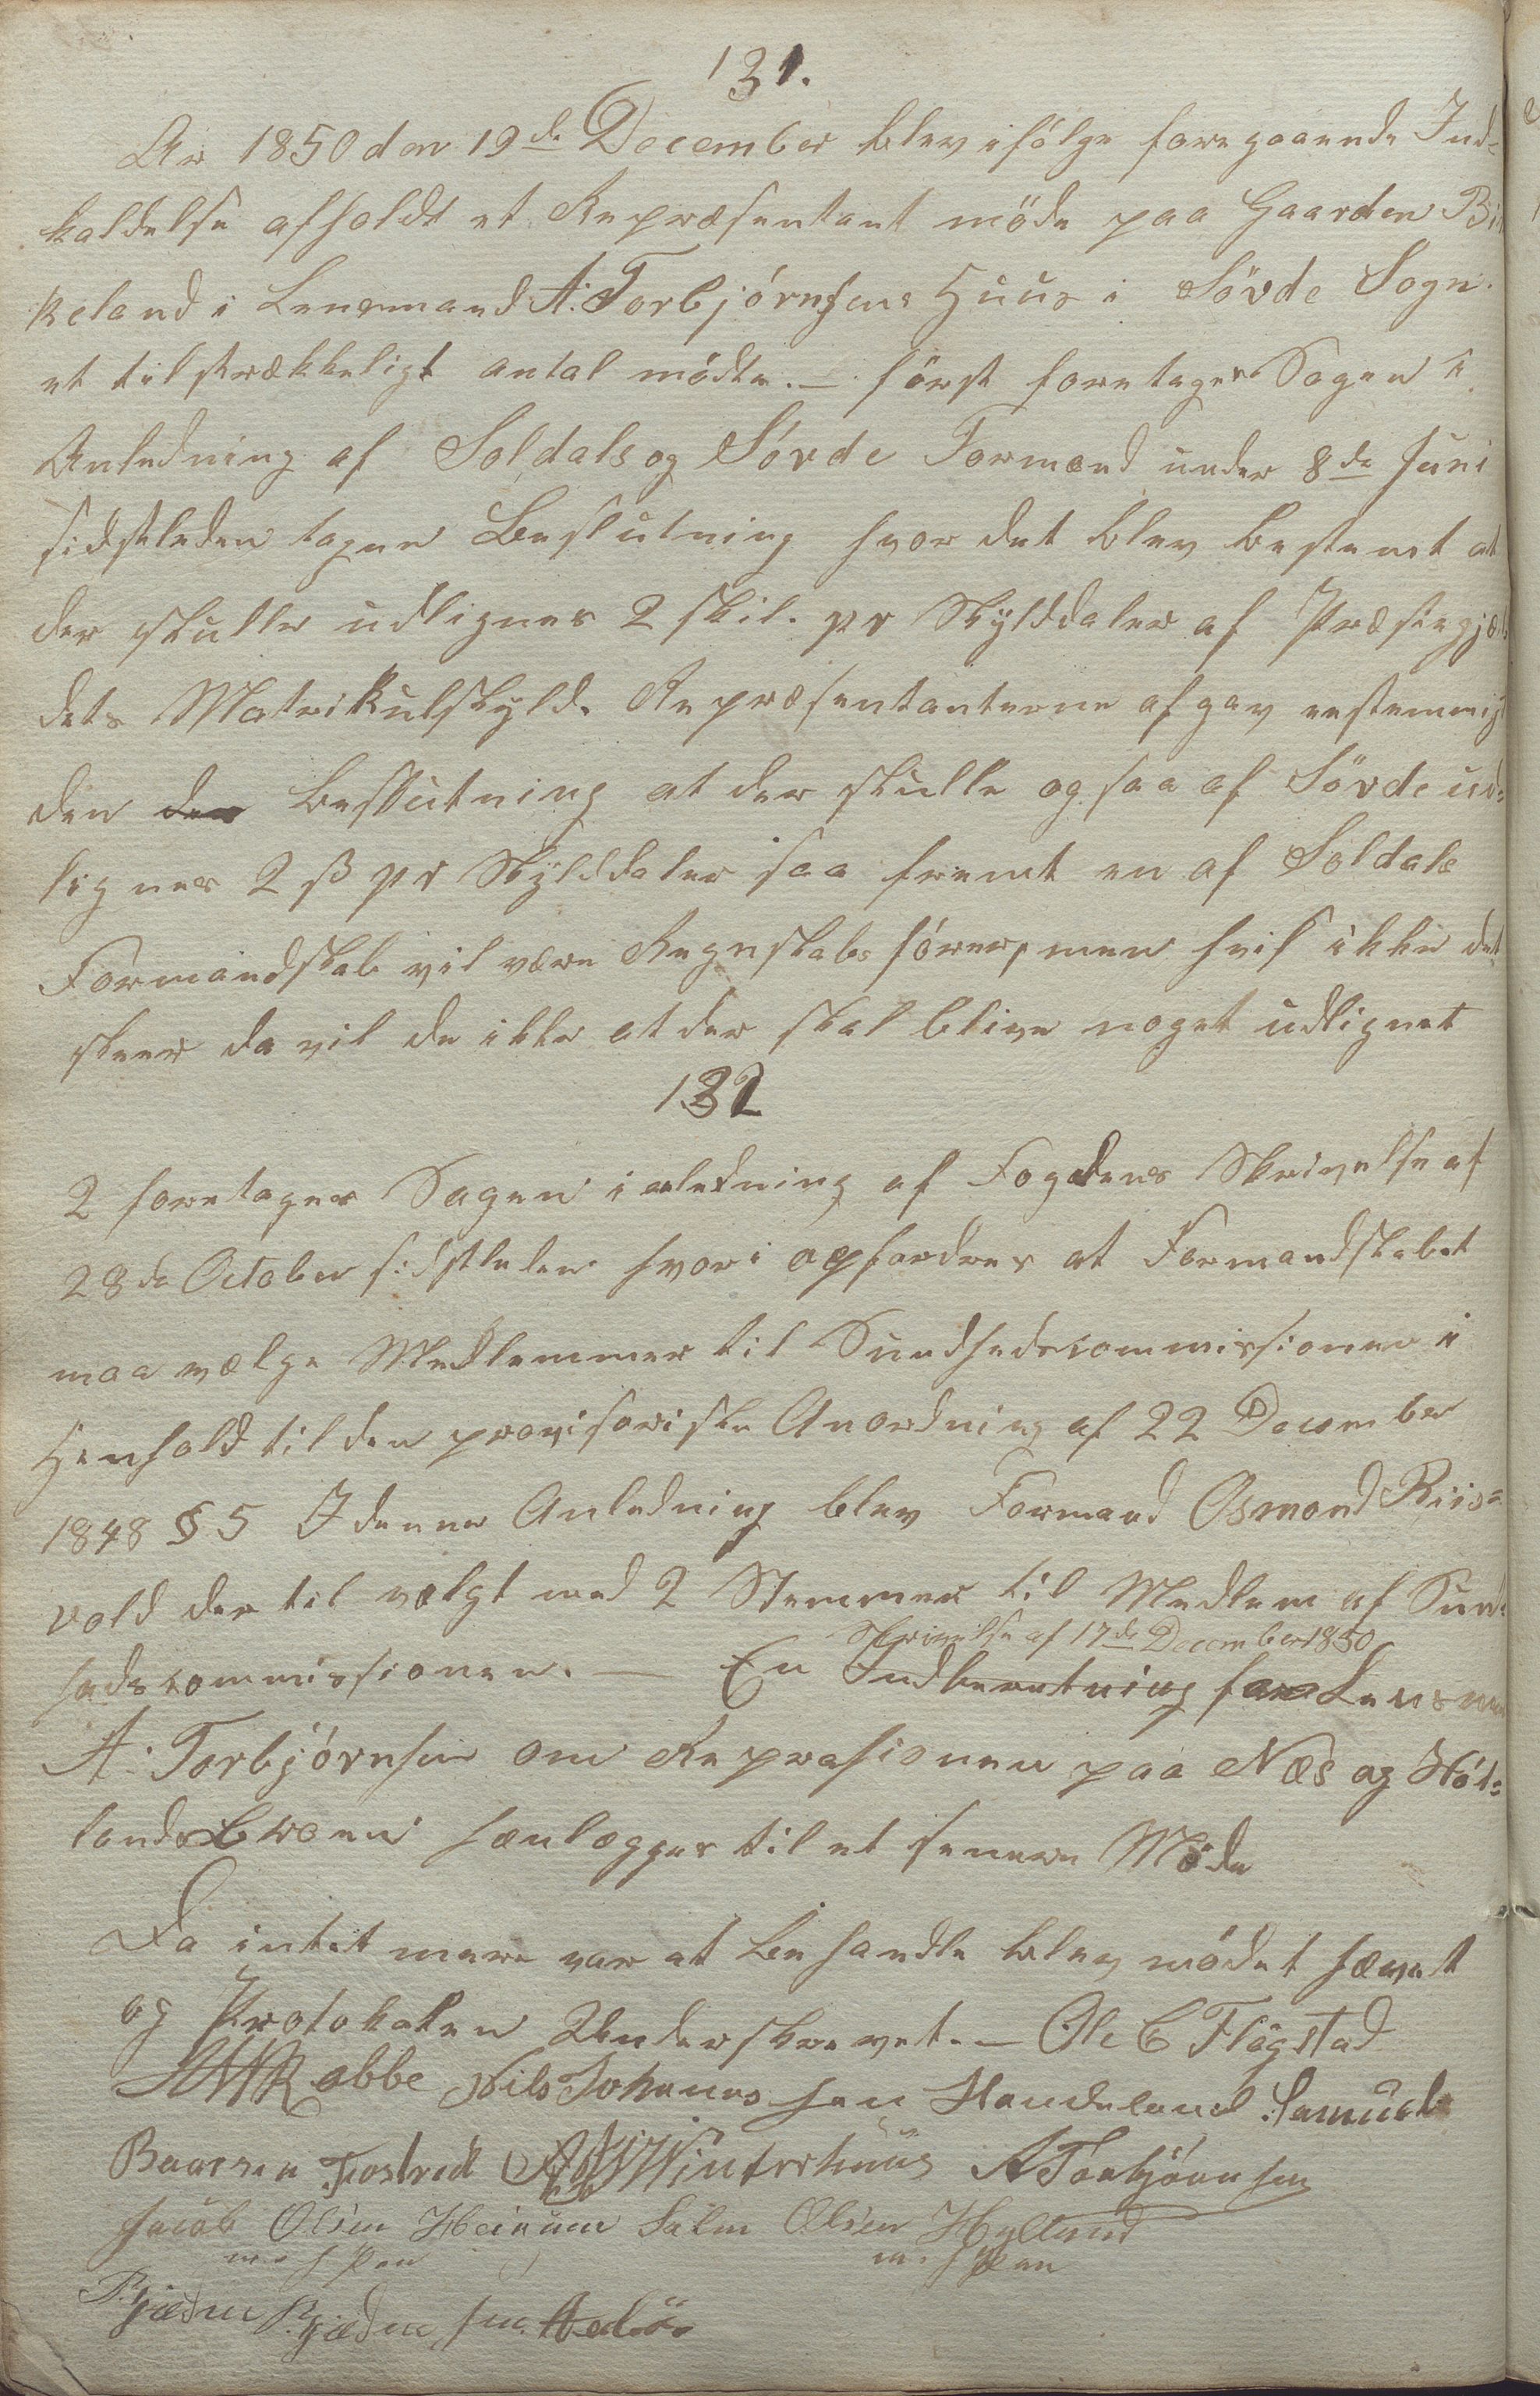 131.
Aar 1850 den 19de December blev ifölge foregaaende Ind-
kaldelse afholdt et Repræsentant möde paa Gaarden Bir
keland i Lensmand A. Torbjörnsens Huus i Sövde Sogn.
et tilstrækkeligt antal mödte. – först foretages Sagen i
Anledning af Soldals og Sövde Formænd under 8de Juni
sidstleden tagen Beslutning hvor det blev bestemt at
der skulle udlignes 2 skil. pr Skylddaler af Præstegjæl
dets Matrikulskyld. Repræsentanterne afgav eenstemmig
den der Beslutning at der skulle ogsaa af Sövde ud-
lignes 2 ß pr Skylddaler saa fremt en af Soldals
Formandskab vil være Regnskabs förer, men hvis ikke det
skeer da vil de ikke at der skal blive noget udlignet
132
2 foretages Sagen i anledning af Fogdens Skrivelse af
28de October sidstleden hvori opfordres at Formandskabet
maa vælge Medlemmer til Sundhedscommissionen i
Henhold til den provisoriske Anordning af 22 December
1848 § 5 I denne Anledning blev Formand Osmond Riis-
vold der til valgt med 2 Stemmer til Medlem af Sund
Skrivelse af 17de December 1850
hedscommissionen. – En Indberetning fra Lensman
A. Torbjörnsen om Reprasionen paa Næs og Höt-
lands Broen henlægges til et senere Möde
Da intet mere var at behandle blev mödet hævet
og Protokolen Underskrevet. – Ole C Flögstad
Rabbe Nils Johannes sen Handeland Samuel
Baarsen Fostved Winterhuus A Torbjörnsen
Jacob Olsen Heinum Salm Olsen Hylland
m. f. Pen m. f. Pen
Gjædm Gjædm sen